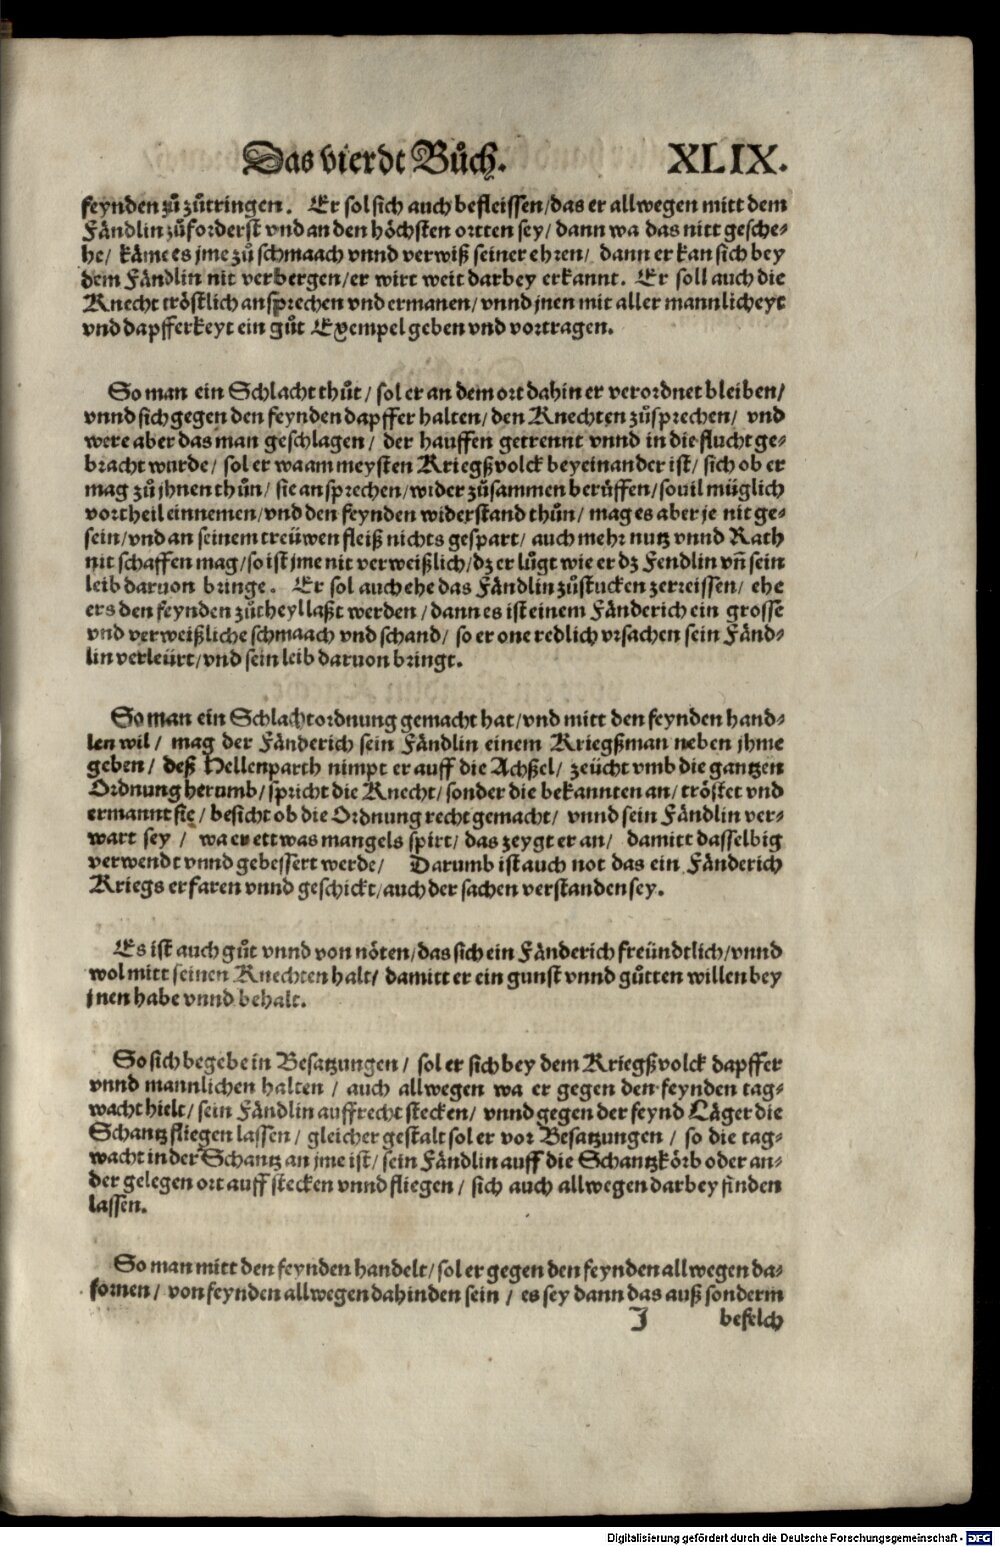 Das vierdt Bůch. XLIX.
feynden zů zůtringen. Er sol sich auch befleissen/das er allwegen mitt dem
Fändlin zůforderst vnd an den höchsten ortten sey/dann wa das nitt gesche-
he/ käme es jme zů schmaach vnnd verwiß seiner ehren/ dann er kan sich bey
dem Fändlin nit verbergen/er wirt weit darbey erkannt. Er soll auch die
Knecht tröstlich ansprechen vnd ermanen/vnnd jnen mit aller mannlicheyt
vnd dapfferkeyt ein gůt Exempel geben vnd vortragen.
So man ein Schlacht thůt/ sol er an dem ort dahin er verordnet bleiben/
vnnd sich gegen den feynden dapffer halten/den Knechten zůsprechen/ vnd
were aber das man geschlagen/ der hauffen getrennt vnnd in die flucht ge-
bracht wurde/ sol er wa am meysten Kriegßvolck beyeinander ist/ sich ob er
mag zů jhnen thůn/ sie ansprechen/wider zůsammen berůffen/souil müglich
vortheil einnemen/vnd den feynden widerstand thůn/ mag es aber je nit ge-
sein/vnd an seinem treüwen fleiß nichts gespart/ auch mehr nutz vnnd Rath
nit schaffen mag/so ist jme nit verweißlich/dz er lůgt wie er dz Fendlin vñ sein
leib daruon bringe. Er sol auch ehe das Fändlin zůstucken zerreissen/ ehe
ers den feynden zůtheyl laßt werden/dann es ist einem Fänderich ein grosse
vnd verweißliche schmaach vnd schand/ so er one redlich vrsachen sein Fänd-
lin verleürt/vnd sein leib daruon bringt.
So man ein Schlachtordnung gemacht hat/vnd mitt den feynden hand-
len wil/ mag der Fänderich sein Fändlin einem Kriegßman neben jhme
geben/ deß Hellenparth nimpt er auff die Achßel/ zeücht vmb die gantzen
Ordnung herumb/spricht die Knecht/sonder die bekannten an/tröstet vnd
ermannt sie/besicht ob die Ordnung recht gemacht/ vnnd sein Fändlin ver-
wart sey/ wa er ettwas mangels spirt/das zeygt er an/ damitt dasselbig
verwendt vnnd gebessert werde/ Darumb ist auch not das ein Fänderich
Kriegs erfaren vnnd geschickt/auch der sachen verstanden sey.
Es ist auch gůt vnnd von nöten/das sich ein Fänderich freündtlich/vnnd
wol mitt seinen Knechten halt/ damitt er ein gunst vnnd gůtten willen bey
jnen habe vnnd behalt.
So sich begebe in Besatzungen/ sol er sich bey dem Kriegßvolck dapffer
vnnd mannlichen halten/ auch allwegen wa er gegen den feynden tag-
wacht hielt/sein Fändlin auffrecht stecken/ vnnd gegen der feynd Läger die
Schantz fliegen lassen/gleicher gestalt sol er vor Besatzungen/ so die tag-
wacht in der Schantz an jme ist/sein Fändlin auff die Schantzkörb oder an-
der gelegen ort auff stecken vnnd fliegen/ sich auch allwegen darbey finden
lassen.
So man mitt den feynden handelt/sol er gegen den feynden allwegen da-
fornen/ von feynden allwegen dahinden sein/ es sey dann das auß sonderm
J befelch
Digitalisierung gefördert durch die Deutsche Forschungsgemeinschaft - DFG